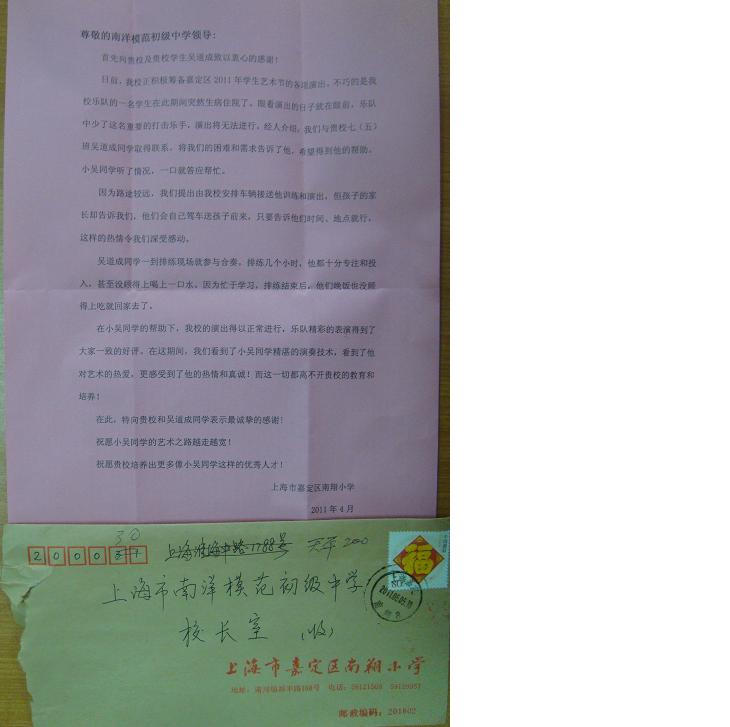 尊敬的南洋模范初级中学领导:
首先向贵校及贵校学生吴道成致以衷心的感谢!
日前,我校正积极筹备嘉定区2011年学生艺术节的各项演出,不巧的是我
校乐队的一名学生在此期间突然生病住院了,眼看演出的日子就在眼前,乐队
中少了这名重要的打击乐手,演出将无法进行。经人介绍,我们与贵校七(五)
班吴道成同学取得联系,将我们的困难和需求告诉了他,希望得到他的帮助。
小吴同学听了情况,一口就答应帮忙。
因为路途较远,我们提出由我校安排车辆接送他训练和演出,但孩子的家
长却告诉我们,他们会自己驾车送孩子前来,只要告诉他们时间、地点就行,
这样的热情令我们深受感动。
吴道成同学一到排练现场就参与合奏,排练几个小时,他都十分专注和投
入,甚至没顾得上喝上一口水。因为忙于学习,排练结束后,他们晚饭也没顾
得上吃就回家去了。
在小吴同学的帮助下,我校的演出得以正常进行,乐队精彩的表演得到了
大家一致的好评。在这期间,我们看到了小吴同学精湛的演奏技术,看到了他
对艺术的热爱,更感受到了他的热情和真诚!而这一切都离不开贵校的教育和
培养!
在此,特向贵校和吴道成同学表示最诚挚的感谢!
祝愿小吴同学的艺术之路越走越宽!
祝愿贵校培养出更多像小吴同学这样的优秀人才!
上海市嘉定区南翔小学
2011年4月
30
200031 上海淮海中路1788号 天平200
福
上海市南洋模范初级中学
校长室 (收)
上海市嘉定区南翔小学
邮政编码:201802